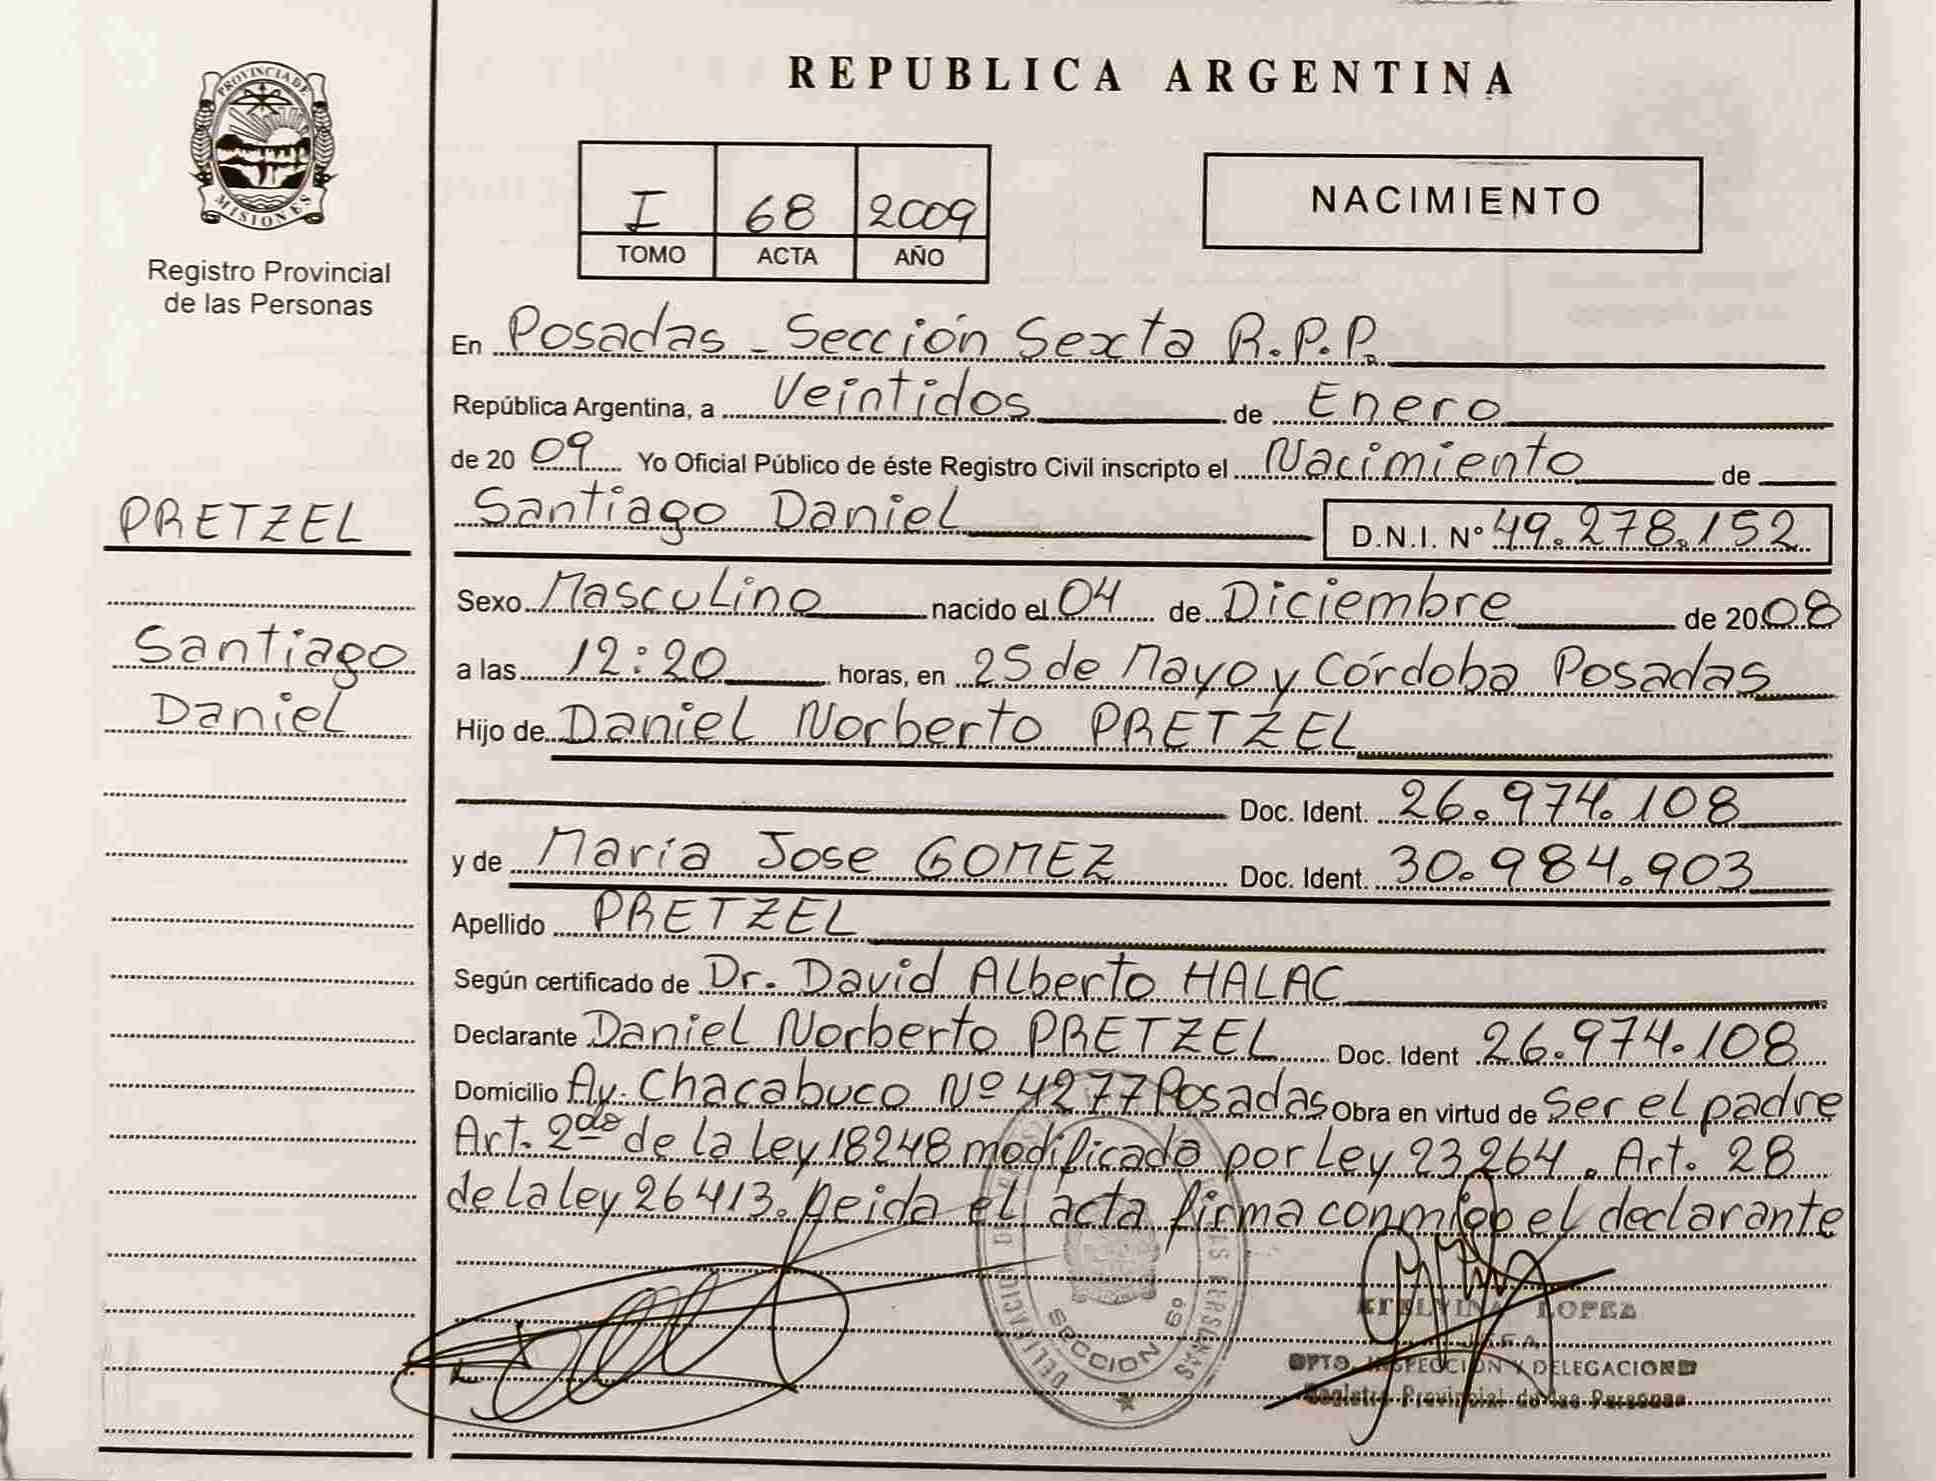 PROVINCIA DE
MISIONES
Registro Provincial
de las Personas
PRETZEL
Santiago
Daniel
REPUBLICA ARGENTINA
I 68 2009
TOMO ACTA AÑO
NACIMIENTO
En Posadas - Sección Sexta R.P.P.
República Argentina, a Veintidos de Enero
de 2009 Yo Oficial Público de éste Registro Civil inscripto el Nacimiento de
Santiago Daniel D.N.I. Nº 49.278.152
Sexo Masculino nacido el 04 de Diciembre de 2008
a las 12:20 horas, en 25 de Mayo y Córdoba Posadas
Hijo de Daniel Norberto PRETZEL
Doc. Ident. 26.974.108
y de María Jose GOMEZ Doc. Ident. 30.984.903
Apellido PRETZEL
Según certificado de Dr. David Alberto HALAC
Declarante Daniel Norberto PRETZEL Doc. Ident 26.974.108
Domicilio Av. Chacabuco Nº 4277 Posadas Obra en virtud de Ser el padre
Art. 2do de la Ley 18248 modificada por Ley 23264. Art. 28
de la ley 26413. Leida el acta firma conmigo el declarante
SECCION 6º
ETELVINA LOPEZ
JEFA
DPTO. INSPECCIÓN Y DELEGACIONES
Registro Provincial de las Personas